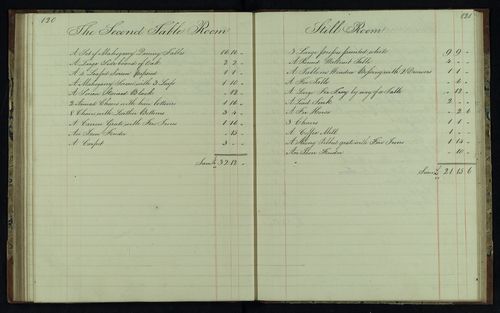 120
The Second Table Room
A Set of Mahogany Dining Tables 10 10 -
A Large Sideboard of Oak 2 2 -
A 2 Leafed Screen 1 1 -
A Mahogany Screen with 3 Leafs 1 10 -
A Steward - 12 -
2 Armed Chairs with bottoms 1 16 -
8 Chairs with Leather Bottoms 3 4 -
A Grate with Fire Irons 1 16 -
An Iron Fender - 15 -
A Carpet 3 - -
Sum £
121
Still Room
3 Large presses painted white 9 9 -
A Round Walnut Table 4 - -
A Table in Window & Drawers 1 1 -
A Table - 6 -
A Large Tray by way of a Table - 12 -
A Lead Sink 2 - -
A Horse - 2 6
3 Chairs 1 1 -
A Coffee Mill 1 - -
A Ribbed grate with Fire Irons 1 14 -
An Iron Fender - 10 -
Sum £ 21 15 6